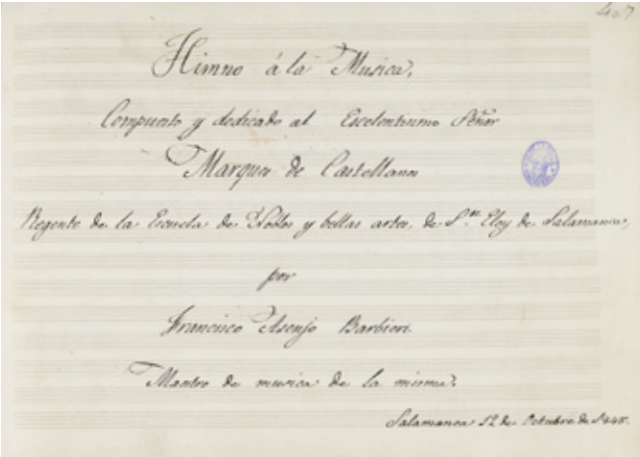 407
Himno á la Musica,
Compuesto y dedicado al Escelentisimo Señor
Marques de Castellanos
Regente de la Escuela de Nobles y bellas artes, de S.n Eloy de Salamanca,
por
Francisco Asenjo Barbieri.
Maestro de musica de la misma.
Salamanca 12 de Octubre de